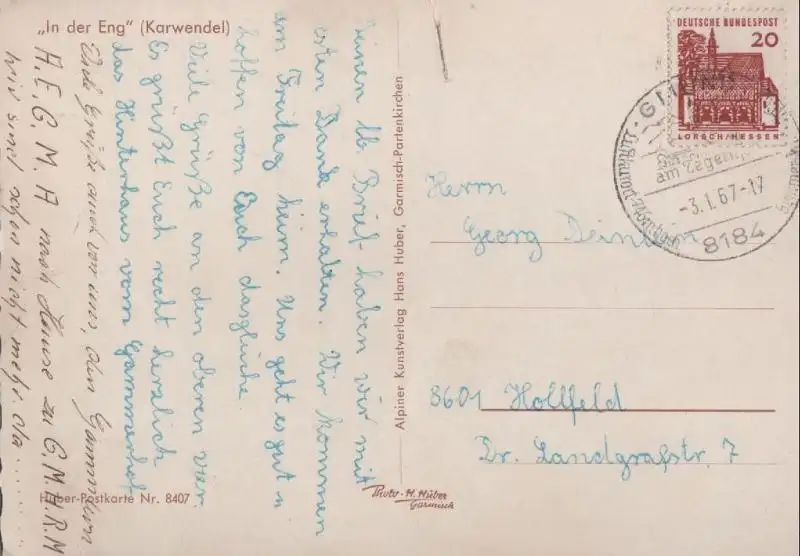 „In der Eng" (Karwendel)
Deinen lb. Brief haben wir mit
esten Dank erhalten. Wir kommen
am Freitag heim. Uns geht es gut u
hoffen von Euch dasgleiche.
Viele Grüße an den oberen vier.
Es grüßt Euch recht herzlich
das Hinterhaus vom Gammerhof
Viele Grüße auch von uns, den
H. E. G. M. A nach Hause zu G. M. H. R. M
wir sind schon nicht mehr da
Huber-Postkarte Nr. 8407
Alpiner Kunstverlag Hans Huber, Garmisch-Partenkirchen
Photo-H. Huber
Garmisch
DEUTSCHE BUNDESPOST
20
LORSCH/HESSEN
am Tegern
-3.1.67-17
8184
Herrn
Georg
8601 Hollfeld
Dr. Landgrafstr. 7